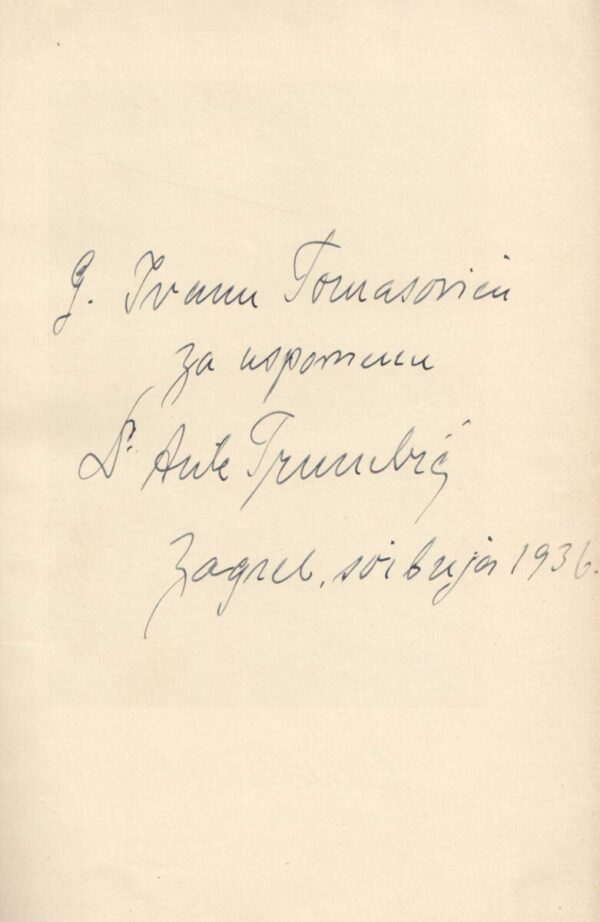 G. Ivanu Tomasoviću
za uspomenu
Dr. Ante Trumbić
Zagreb, svibnja 1936.